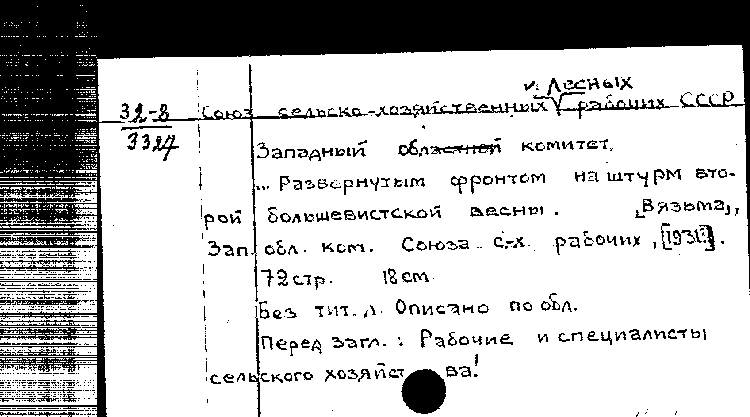 и лесных
32-8 Союз сельско-хозяйственных √ рабочих СССР
3324 Западный областной комитет.
... Развернутым фронтом на штурм вто-
рой большевистской весны. [Вязьма],
Зап. обл. ком. Союза с.-х. рабочих, [1931?].
72 стр. 18 см.
Без тит. л. Описано по обл.
Перед загл.: Рабочие и специалисты
сельского хозяйства!